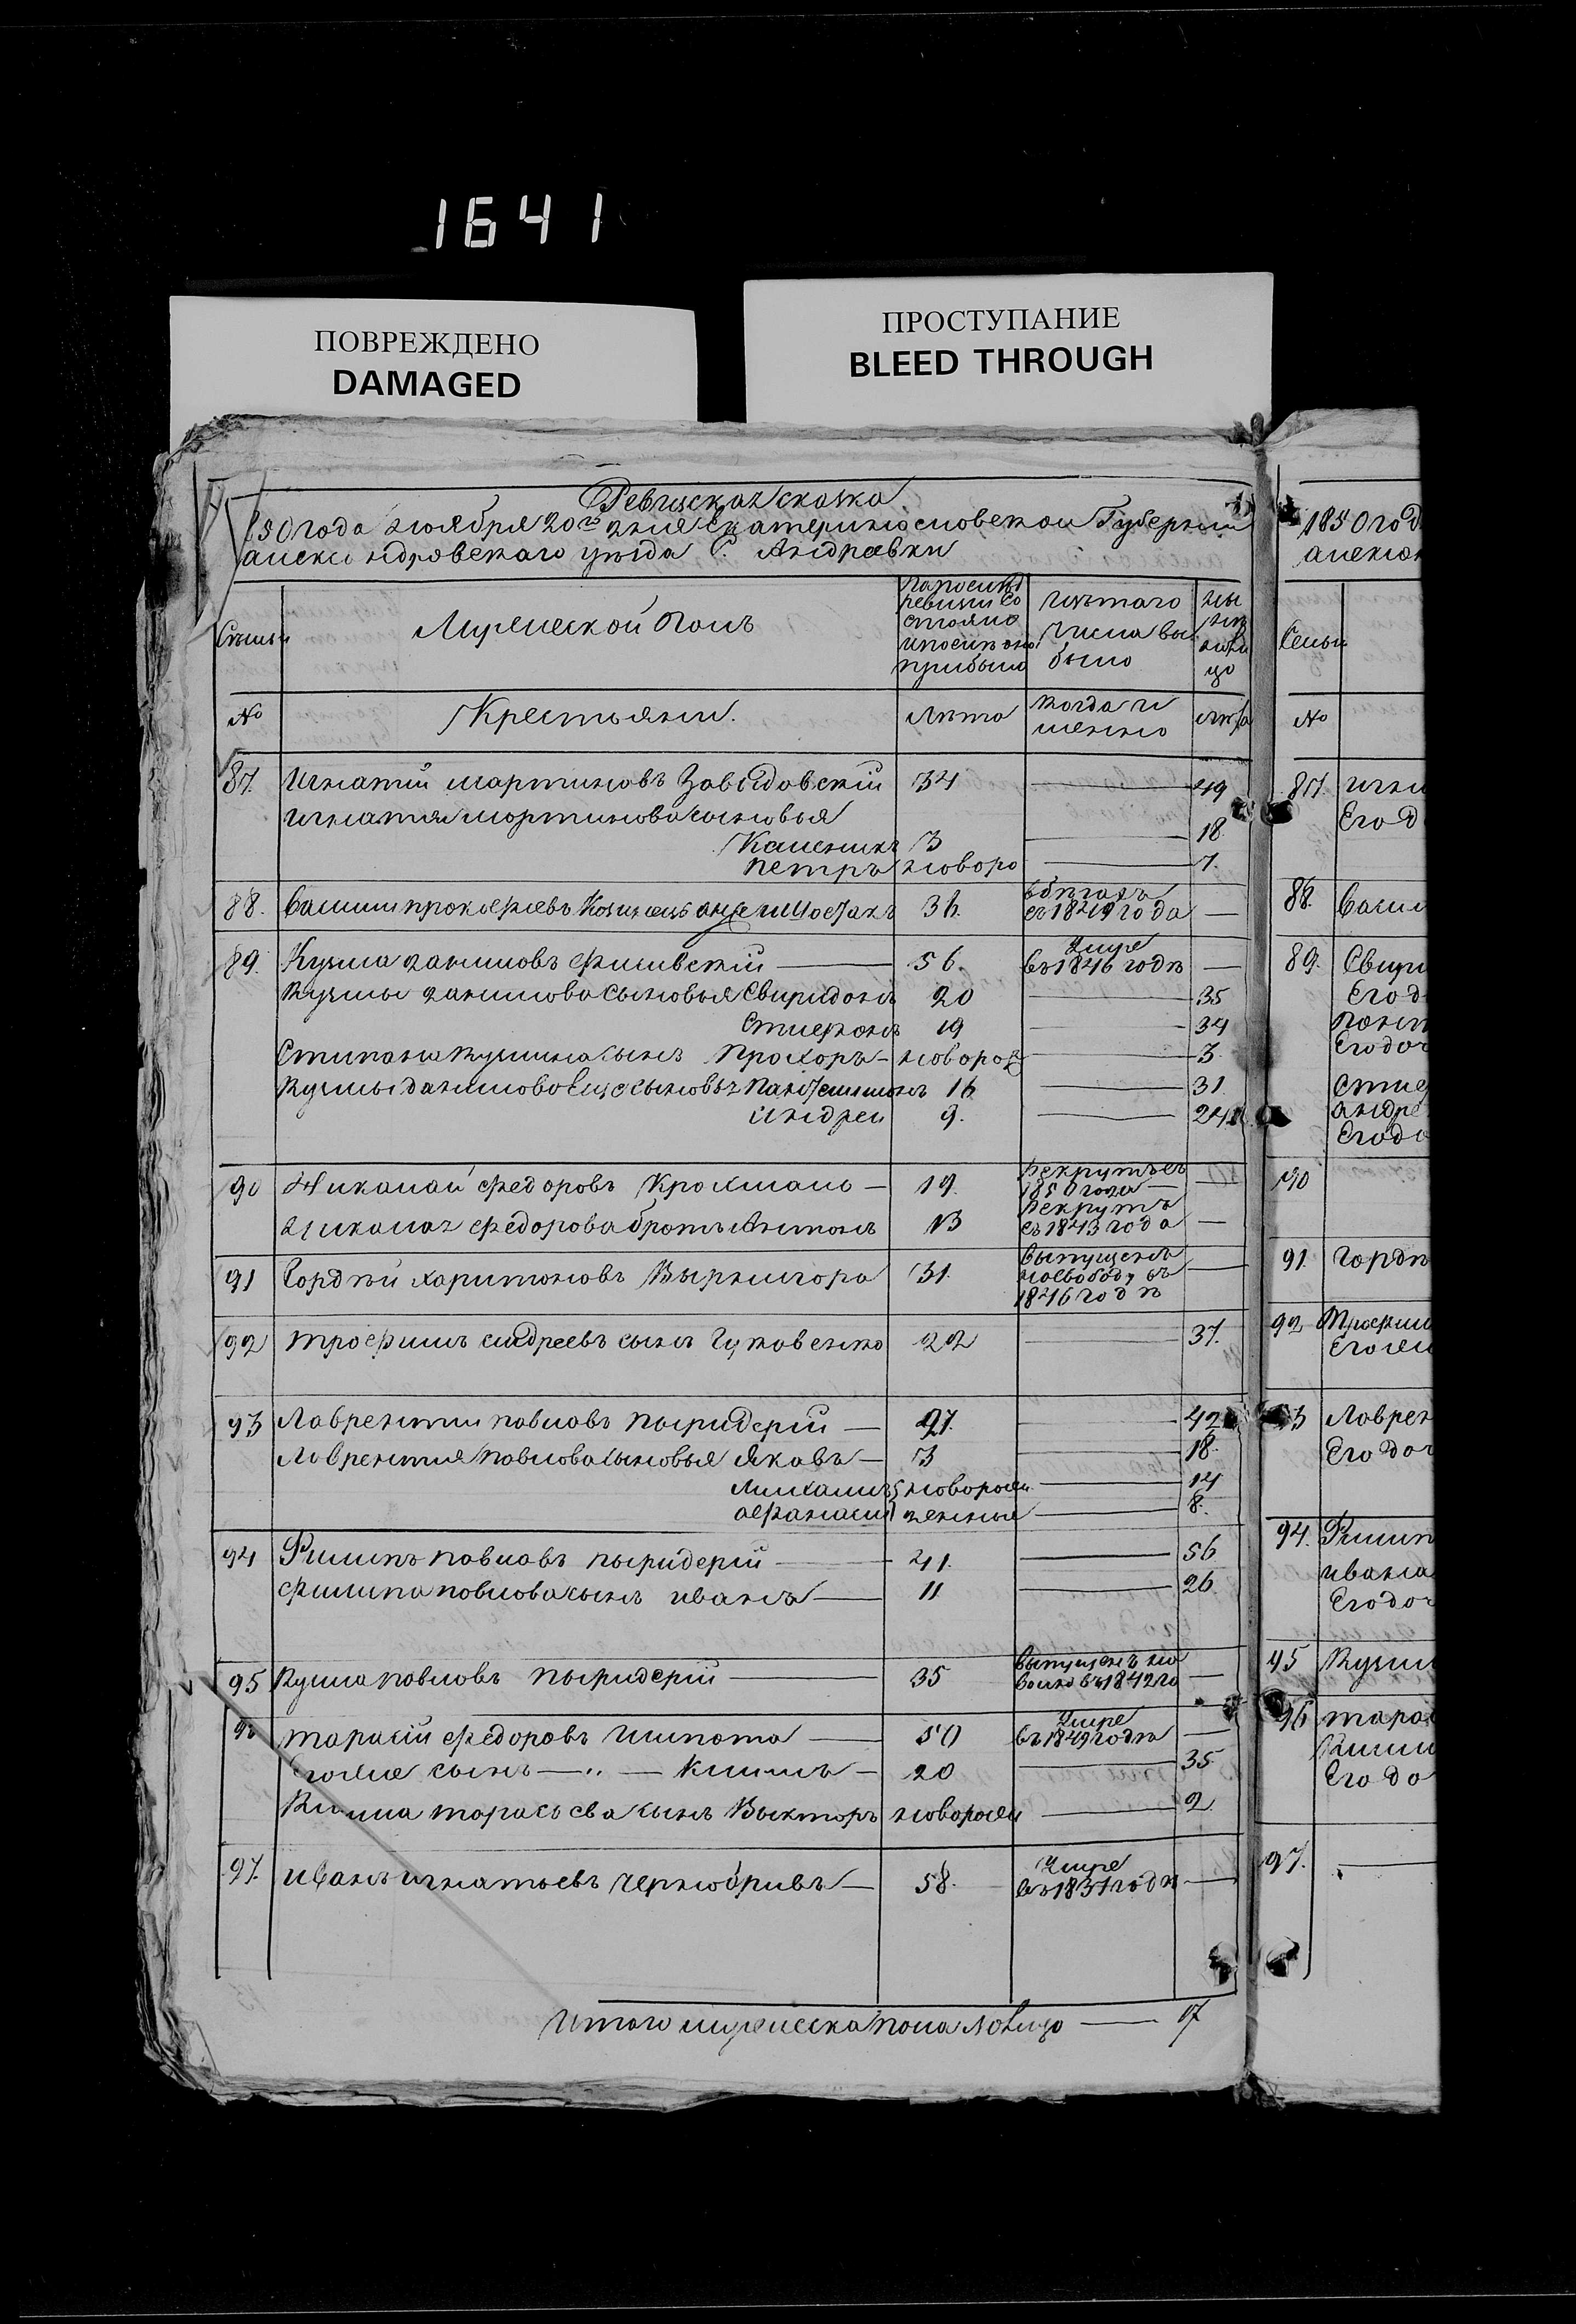 1641
ПОВРЕЖДЕНО
DAMAGED
ПРОСТУПАНИЕ
BLEED THROUGH
Ревизская сказка
1850 года ноября 20го дня Екатеринославской Губернии
Александровскаго уезда С. Андреевки
Семьи
Мужеской Полъ
По последней
ревизии со
стояло
и после оной
прибыло
Изъ того
числа вы
было
Ны
не
на ли
цо
№
Крестьяни.
Лета
Когда и
менно
лета
87. Игнатий Мартиновъ Завидовский 34 — 49
Игнатия Мартинова сыновья
Каленикъ 3 — 18
Петръ новоро — 7.
88. Василий Прокофьевъ Шостакъ 36. в бегахъ
съ 1849 года —
89. Кузма Данииловъ 56. Умре
въ 1846 годе —
Кузмы Даниилова сыновья Свиридонъ 20 — 35
Стефанъ 19 — 34
Степана Кузмина сынъ Прохоръ — новорож — 3.
Кузмы Даниилова еще сыновья Пантелимонъ 16 — 31
Андрей 9. — 24
90 Николай Федоровъ Крохмаль — 19. рекрутъ съ
1850 года —
Николая Федорова братъ Антонъ 13 рекрутъ
съ 1843 года —
91 Гордей Харитоновъ Вырнигора 31. выпущенъ
на свободу въ
1846 годе —
92 Трофимъ Андреевъ сынъ 22 — 37.
93 Лаврентий Павловъ Пыридерий — 27. — 42
Лаврентия Павлова сыновья Яковъ — 3 — 18.
Михаилъ новорож — 14
Афанасий денные — 8.
94 Филипъ Павловъ Пыридерий — 41. — 56
Филипа Павлова сынъ Иванъ — 11 — 26
95 Кузма Павловъ Пыридерий — 35 выпущенъ на
волю въ 1842 го —
96 Тарасий Федоровъ Шипота — 50 Умре
въ 1849 годе —
Его же сынъ — „ — Климъ — 20 — 35
Клима Тарасьева сынъ Выкторъ новорожн — 2
97. Иванъ Игнатьевъ Чернобривъ — 58. Умре
въ 1837 годе —
Итого мужеска пола налицо — 17
1850 год
Алексан
Семьи
№
87. Игна
Его д
88. Васил
89. Свири
Его д
Пант
Его доч
Стеф
Андре
Его до
90
91. Горде
92 Трофим
Его жен
93 Лаврен
Его доч
94. Филип
Ивана
Его доч
95 Кузм
96 Тарас
Клим
Его до
97. —